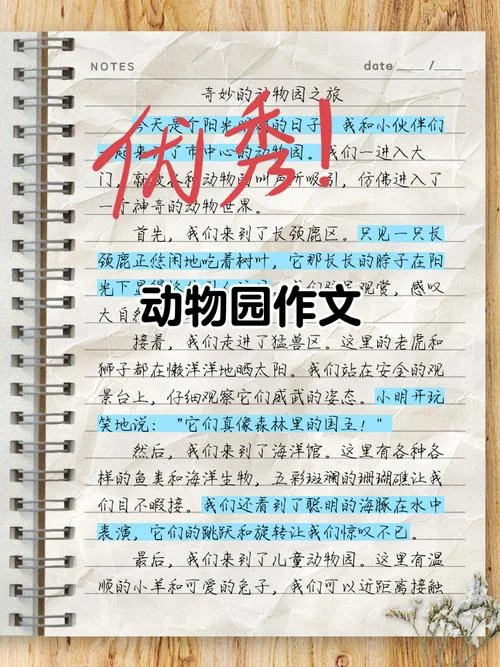 NOTES
date ___ / ___
奇妙的动物园之旅
今天是个阳光明媚的日子，我和小伙伴们
一起来到了市中心的动物园。我们一进入大
门，就被各种动物的叫声所吸引，仿佛进入了
一个神奇的动物世界。
优秀！
首先，我们来到了长颈鹿区。只见一只长
颈鹿正悠闲地吃着树叶，它那长长的脖子在阳
光下显得
观赏，感叹
大自
动物园作文
接着，我们走进了猛兽区。这里的老虎和
狮子都在懒洋洋地晒太阳。我们站在安全的观
景台上，仔细观察它们威武的姿态。小明开玩
笑地说：“它们真像森林里的国王！”
然后，我们来到了海洋馆。这里有各种各
样的鱼类和海洋生物，五彩斑斓的珊瑚礁让我
们目不暇接。我们还看到了聪明的海豚在水中
表演，它们的跳跃和旋转让我们惊叹不已。
最后，我们来到了儿童动物园。这里有温
顺的小羊和可爱的兔子，我们可以近距离接触